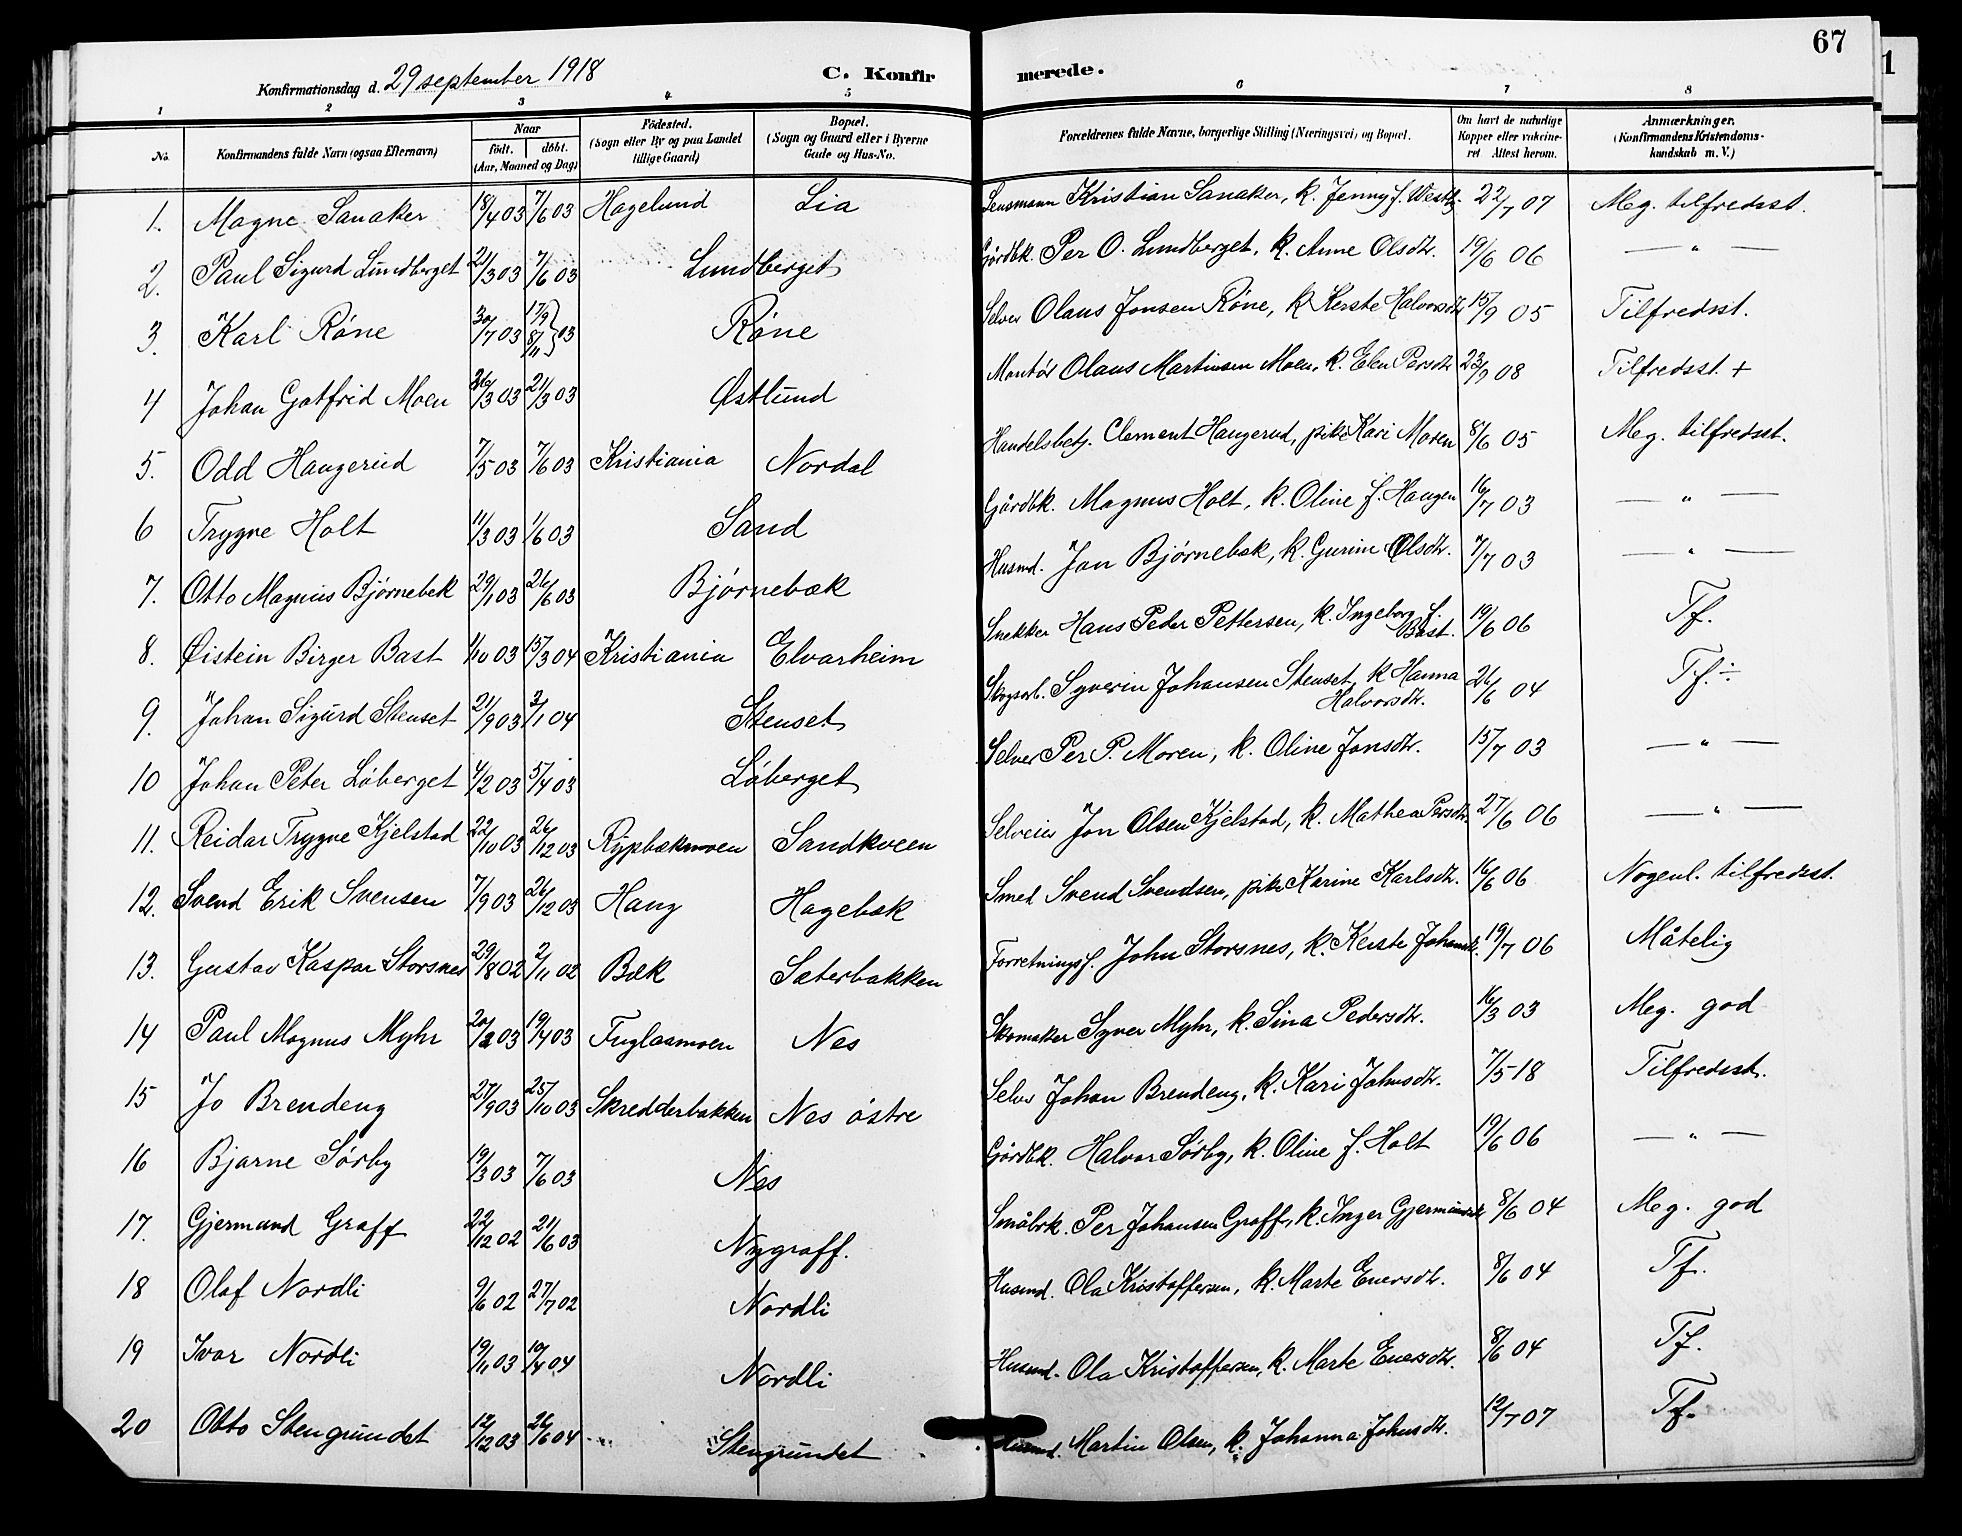 67
1
Konfirmationsdag d. 29 september 1918 C. Konfirmerede.
1 2 3 4 5 6 7 8
No. Konfirmandens fulde Navn (ogsaa Efternavn) Naar födt. döbt. (Aar, Maaned og Dag) Födested. (Sogn eller By og paa Landet tillige Gaard) Bopæl. (Sogn og Gaard eller i Byerne Gade og Hus-No. Forældrenes fulde Navne, borgerlige Stilling (Næringsvei) og Bopæl. Om havt de naturlige Kopper eller vakcineret Attest herom. Anmærkninger. (Konfirmandens Kristendomskundskab m. V.)
1. Magne Sanaker 18/4 03 7/6 03 Hagelund Lia Lensmann Kristian Sanaker, k. Jenny f. 22/7 07 Meg. tilfredsst.
2. Paul Sigurd Lundberget 21/3 03 7/6 03 Lundberget Gårdbk. Per O. Lundberget, k. Anne Olsdtr. 19/6 06 — " —
3. Karl Röne 30/7 03 17/9 8/11 } 03 Röne Selver Olaus Jonsen Röne, k Kerste Halvorsdtr 15/9 05 Tilfredsst.
4 Johan Gotfrid Moen 26/3 03 21/3 03 Østlund Montör Olaus Martinsen Moen, k. Elen Persdtr 23/9 08 Tilfredsst. +
5. Odd Haugerud 7/5 03 7/6 03 Kristiania Nordal Handelsbetj. Clement Haugerud, pike Kari Moren 8/6 05 Meg. tilfredsst.
6 Trygve Holt 11/3 03 1/6 03 Sand Gårdbk. Magnus Holt, k. Oline f. Haugen 16/7 03 — " —
7. Otto Magnus Björnebek 29/1 03 26/6 03 Björnebæk Husmd. Jon Björnebek, k. Gurine Olsdtr. 7/7 03 — " —
8. Øistein Birger Bast 1/10 03 15/3 04 Kristiania Elvarheim Snekker Hans Peder Pettersen, k. Ingeborg f. Bast. 19/6 06 Tf.
9. Johan Sigurd Stenset 21/9 03 2/1 04 Stenset Skogsarb. Syverin Johansen Stenset, k Hanna Halvorsdtr. 26/6 04 Tf. ÷
10 Johan Peter Löberget 4/2 03 5/4 03 Löberget Selver Per P. Moren, k. Oline Jonsdtr. 15/7 03 — " —
11. Reidar Trygve Kjelstad 22/10 03 26/12 03 Rypbækmoen Sandkveen Selveier Jon Olsen Kjelstad, k. Mathea Persdtr. 27/6 06 — " —
12. Svend Erik Svensen 7/9 03 26/12 03 Haug Hagebæk Smed Svend Svendsen, pike Karine Karlsdtr. 16/6 06 Nogenl. tilfredsst.
13. Gustav Kaspar Storsnes 29/8 02 2/11 02 Bæk Sæterbakken Forretningsf. John Storsnes, k. Kerste Johansdtr. 19/7 06 Måtelig
14 Paul Magnus Myhr 20/2 03 19/4 03 Fuglasmoen Nes Skomaker Syver Myhr, k. Sina Pedersdtr. 16/3 03 Meg. god
15 Jo Brendeng 27/9 03 25/10 03 Skredderbakken Nes östre Selver Johan Brendeng, k. Kari Johnsdtr. 7/5 18 Tilfredsst.
16 Bjarne Sörby 19/3 03 7/6 03 Nes Gårdbk. Halvor Sörby, k. Oline f. Holt 19/6 06 — " —
17. Gjermund Graff 22/12 02 21/6 03 Nygraff. Småbrk. Per Johansen Graff, k. Inger Gjermundsdtr 8/6 04 Meg. god
18 Olaf Nordli 9/6 02 27/7 02 Nordli Husmd. Ola Kristoffersen, k. Marte Enersdtr. 8/6 04 Tf.
19 Ivar Nordli 19/11 03 10/4 04 Nordli Husmd. Ola Kristoffersen, k. Marte Enersdtr. 8/6 04 Tf.
20 Otto Stengrundet 12/12 03 26/6 04 Stengrundet Husmd. Martin Olsen, k. Johanna Johnsdtr. 12/7 07 Tf.